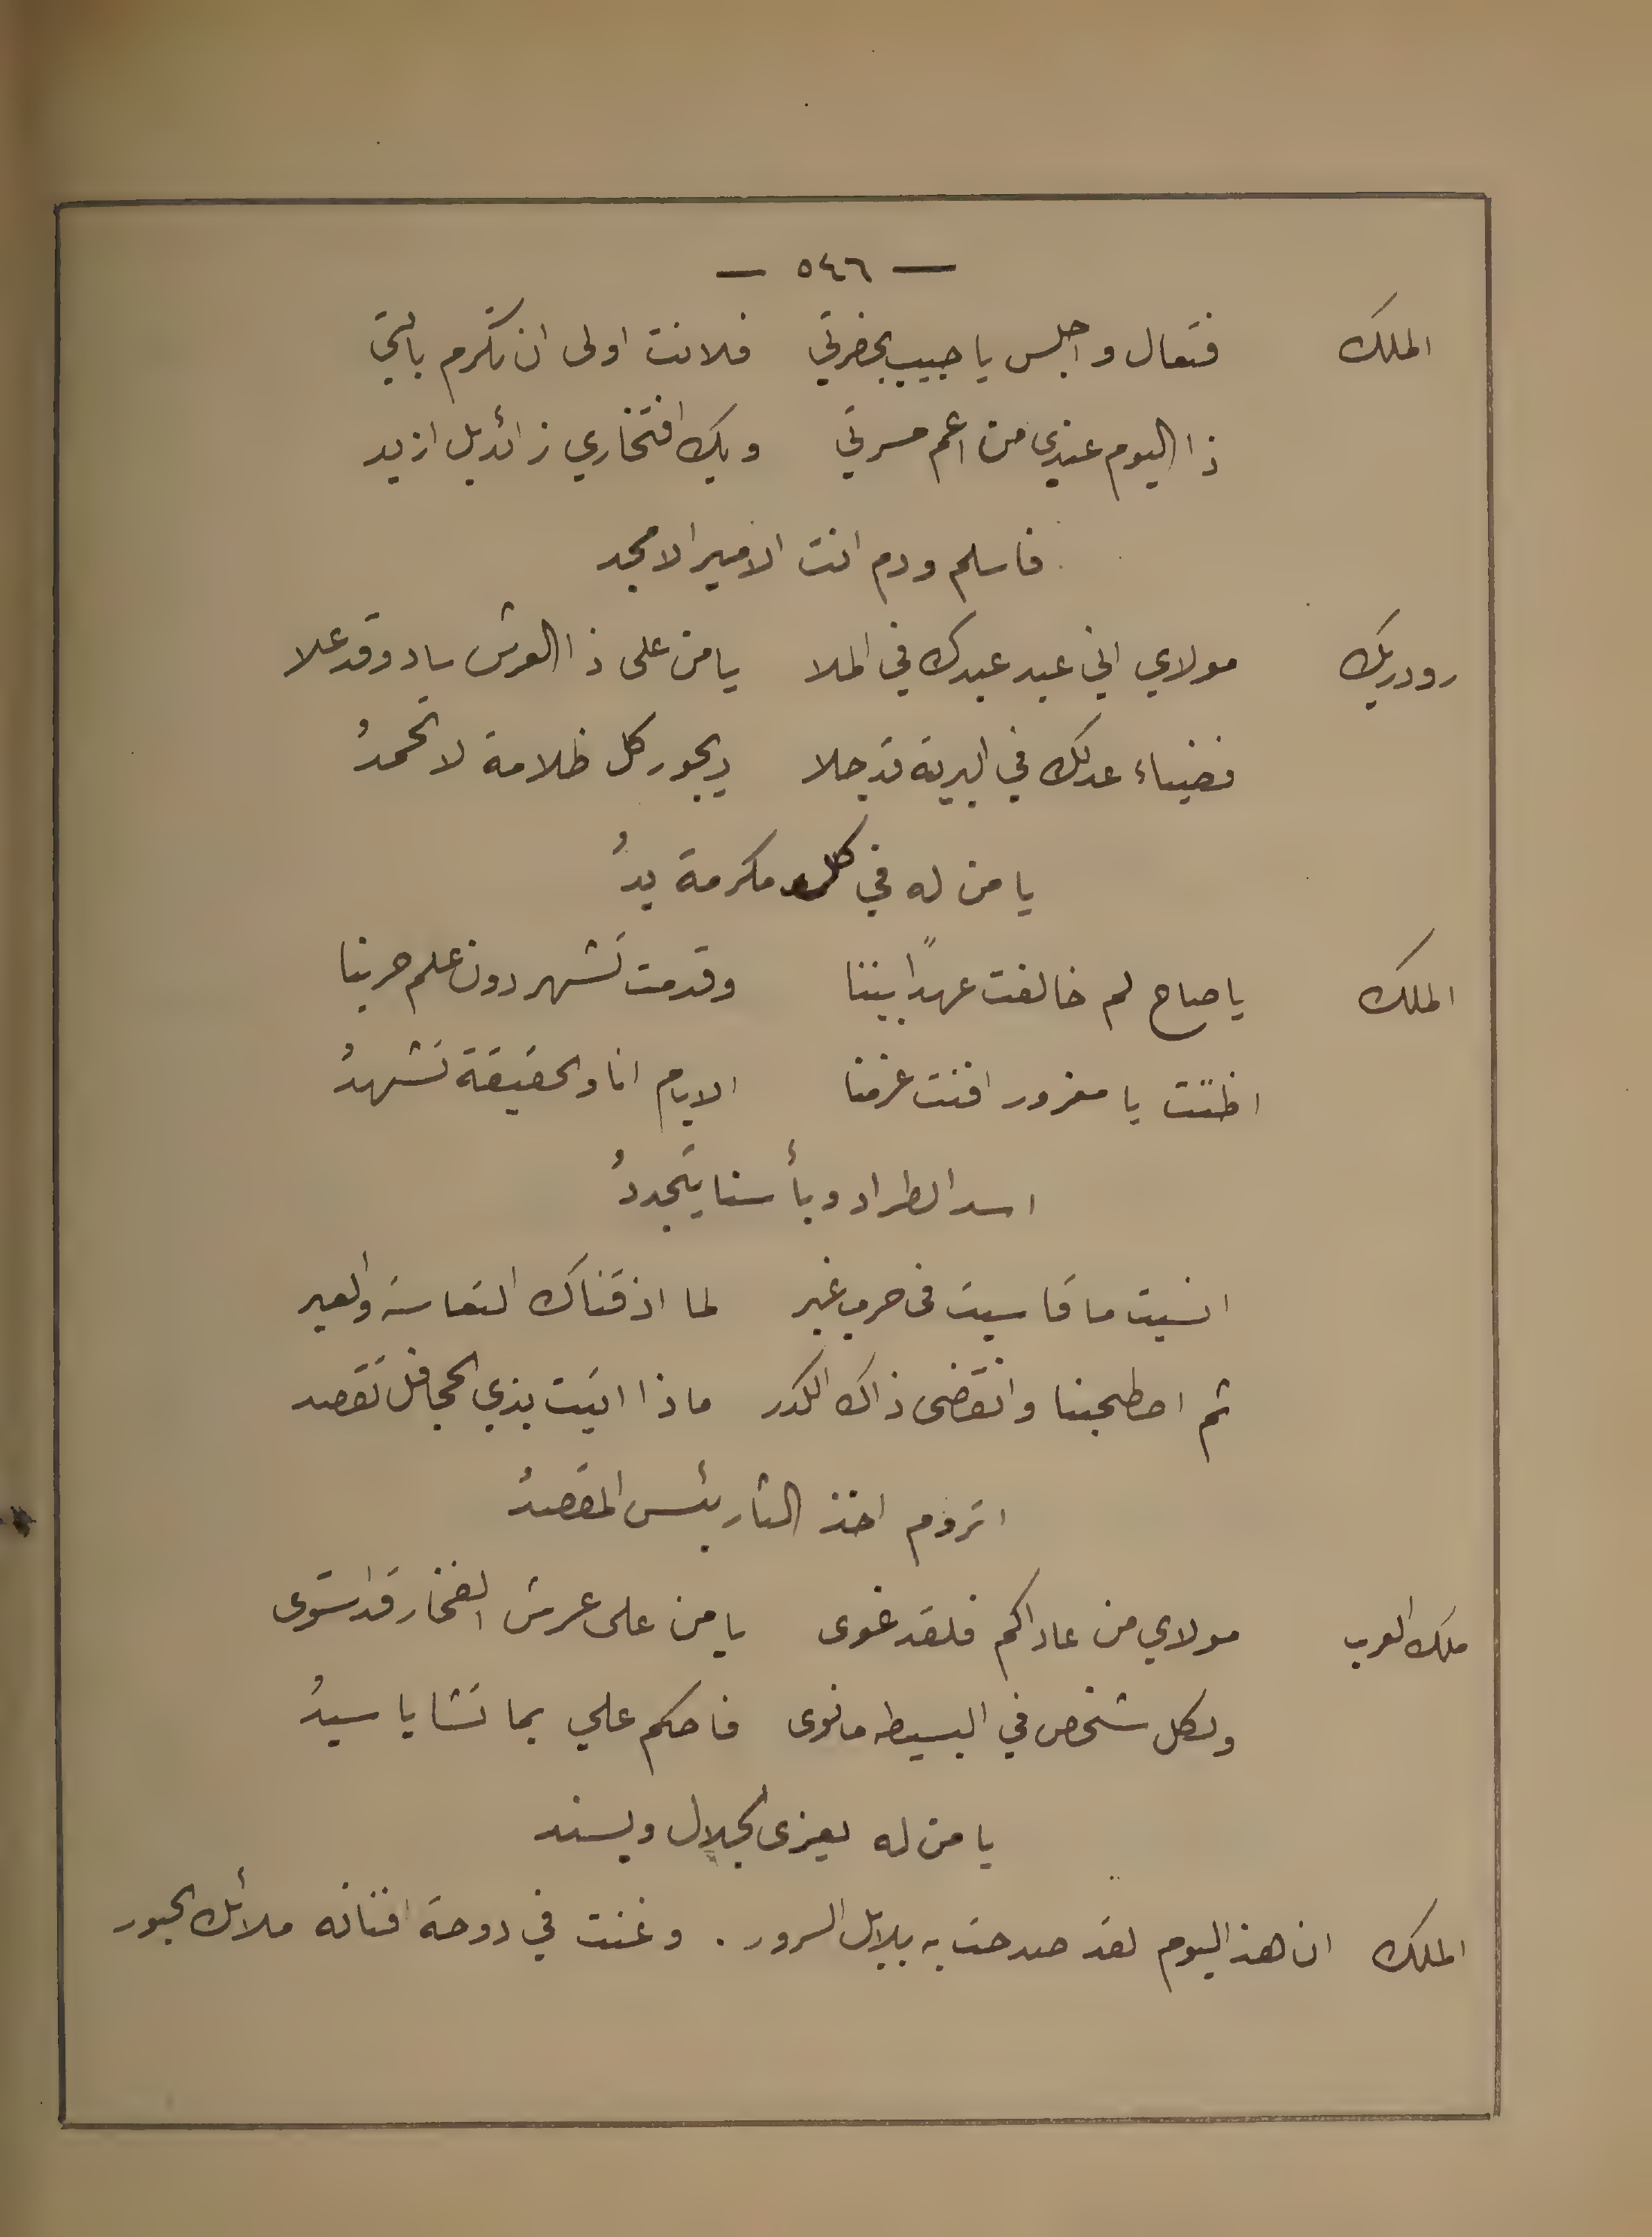 — ٥٤٦ —
الملك فتعال واجلس يا حبيب بحضرتي فلانت اولى ان تكرم بالتي
ذا اليوم عندي من اعم مسرتي وبك افتخاري زائد بل ازيد
فاسلم ودم انت الامير الامجد
رودريك مولاي اني عبد عبدك في الملا يا من على ذا العرش ساد وقد علا
فضياء عدلك في البرية قد جلا ديجور كل ظلامة لا تحمدُ
يا من له في كل مكرمة يدُ
الملك يا صاح لم خالفت عهداً بيننا وقدمت تشهر دون علم حربنا
اظننت يا مغرور افنت عزمنا الايام انا والحقيقة تشهدُ
اسد الطراد وبأسنا يتجددُ
انسيت ما قاسيت في حرب غبر لما اذقناك التعاسة والعبر
ثم اصطحبنا وانقضى ذاك الكدر ماذا اتيت بذي الجحافل تقصد
اتروم اخذ الثار بئس المقصدُ
ملك العرب مولاي من عاداكم فلقد غوى يا من على عرش الفخار قد استوى
ولكل شخص في البسيطه ما نوى فاحكم علي بما تشا يا سيدُ
يا من له يعزى الجلال ويسند
الملك ان هذا اليوم لقد صدحت به بلابل السرور . وغنت في دوحة افنانه ملائك الحبور